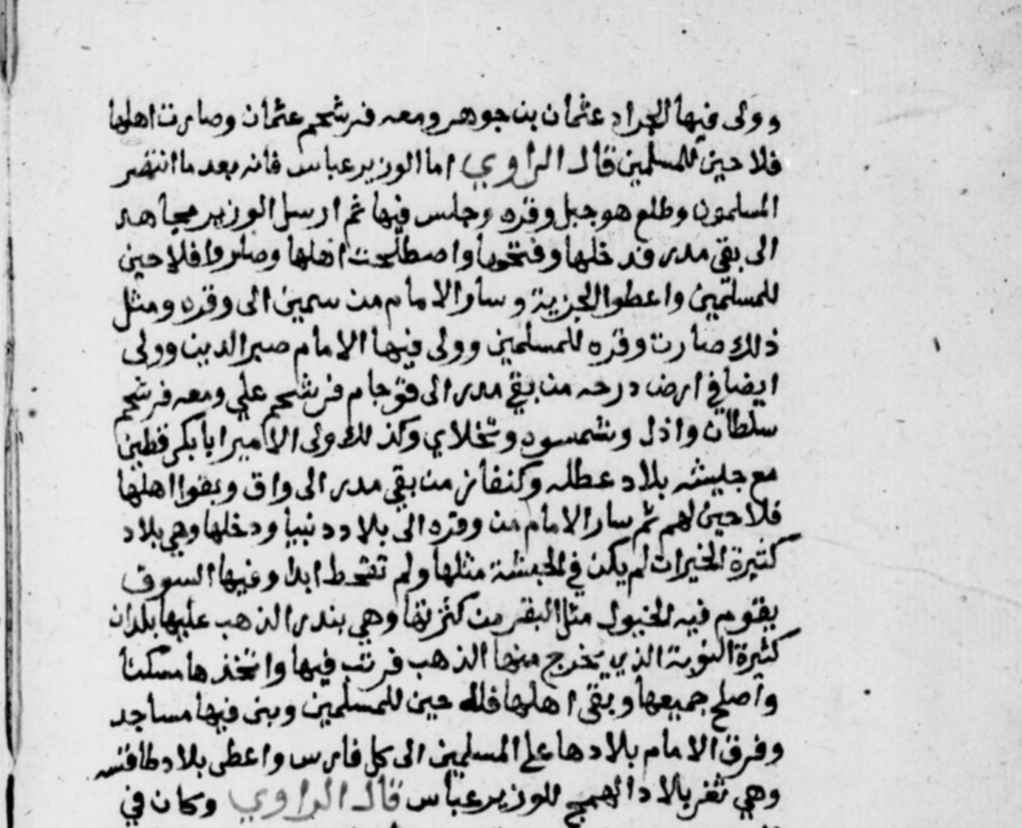 وولى فيها الجراد عثمان بن جوهر ومعه فرشحم عثمان وصارت اهلها
فلاحين للمسلمين قال الراوي اما الوزير عباس فانه بعد ما انتصر
المسلمون وطلع هو جبل وقره وجلس فيها ثم ارسل الوزير مجاهد
الى بقي مدر فدخلها وفتحها واصطلحت اهلها وصاروا فلاحين
للمسلمين واعطوا الجزية وسار الامام من سمين الى وقره ومثل
ذلك صارت وقره للمسلمين وولى فيها الامام صبر الدين وولى
ايضا في ارض درحه من بقي مدر الى قوجام فرشحم علي ومعه فرشحم
سلطان واذل وشمسوه وتخلاي وكذلك ولى الامير ابا بكر قطين
مع جليشه بلاد عطله وكنفانز من بقي مدر الى واق وبقوا اهلها
فلاحين لهم ثم سار الامام من وقره الى بلاد دنبيا ودخلها وهي بلاد
كثيرة الخيرات لم يكن في الحبشة مثلها ولم تقحط ابدا وفيها السوق
يقوم فيه الخيول مثل البقر من كثرتها وهي بندر الذهب عليها بلدان
كثيرة النوبة الذي يخرج منها الذهب فرتب فيها واتخذها مسكنا
واصلح جميعها وبقى اهلها فلاحين للمسلمين وبنى فيها مساجد
وفرق الامام بلادها على المسلمين الى كل فارس واعطى بلاد طاقسه
وهي ثغر بلاد الهمج للوزير عباس قال الراوي وكان في